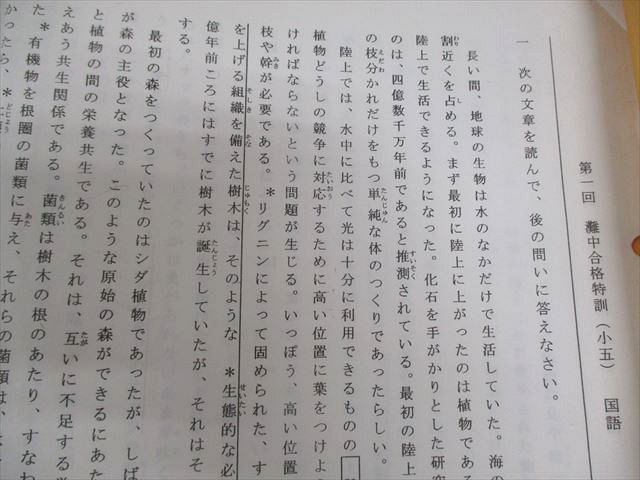 第一回 灘中合格特訓(小五) 国語
一 次の文章を読んで、後の問いに答えなさい。
長い間、地球の生物は水のなかだけで生活していた。海の
割近くを占める。まず最初に陸上に上がったのは植物である
陸上で生活できるようになった。化石を手がかりとした研究
のは、四億数千万年前であると推測されている。最初の陸上
の枝分かれだけをもつ単純な体のつくりであったらしい。
陸上では、水中に比べて光は十分に利用できるものの
植物どうしの競争に対応するために高い位置に葉をつけよ
ければならないという問題が生じる。いっぽう、高い位置
枝や幹が必要である。*リグニンによって固められた、す
を上げる組織を備えた樹木は、そのような *生態的な必
億年前ころにはすでに樹木が誕生していたが、それはそ
する。
最初の森をつくっていたのはシダ植物であったが、しば
が森の主役となった。このような原始の森ができるにあた
と植物の間の栄養共生である。それは、互いに不足する
えあう共生関係である。菌類は樹木の根のあたり、すなわ
た*有機物を根圏の菌類に与え、それらの菌類は、
かったら、*